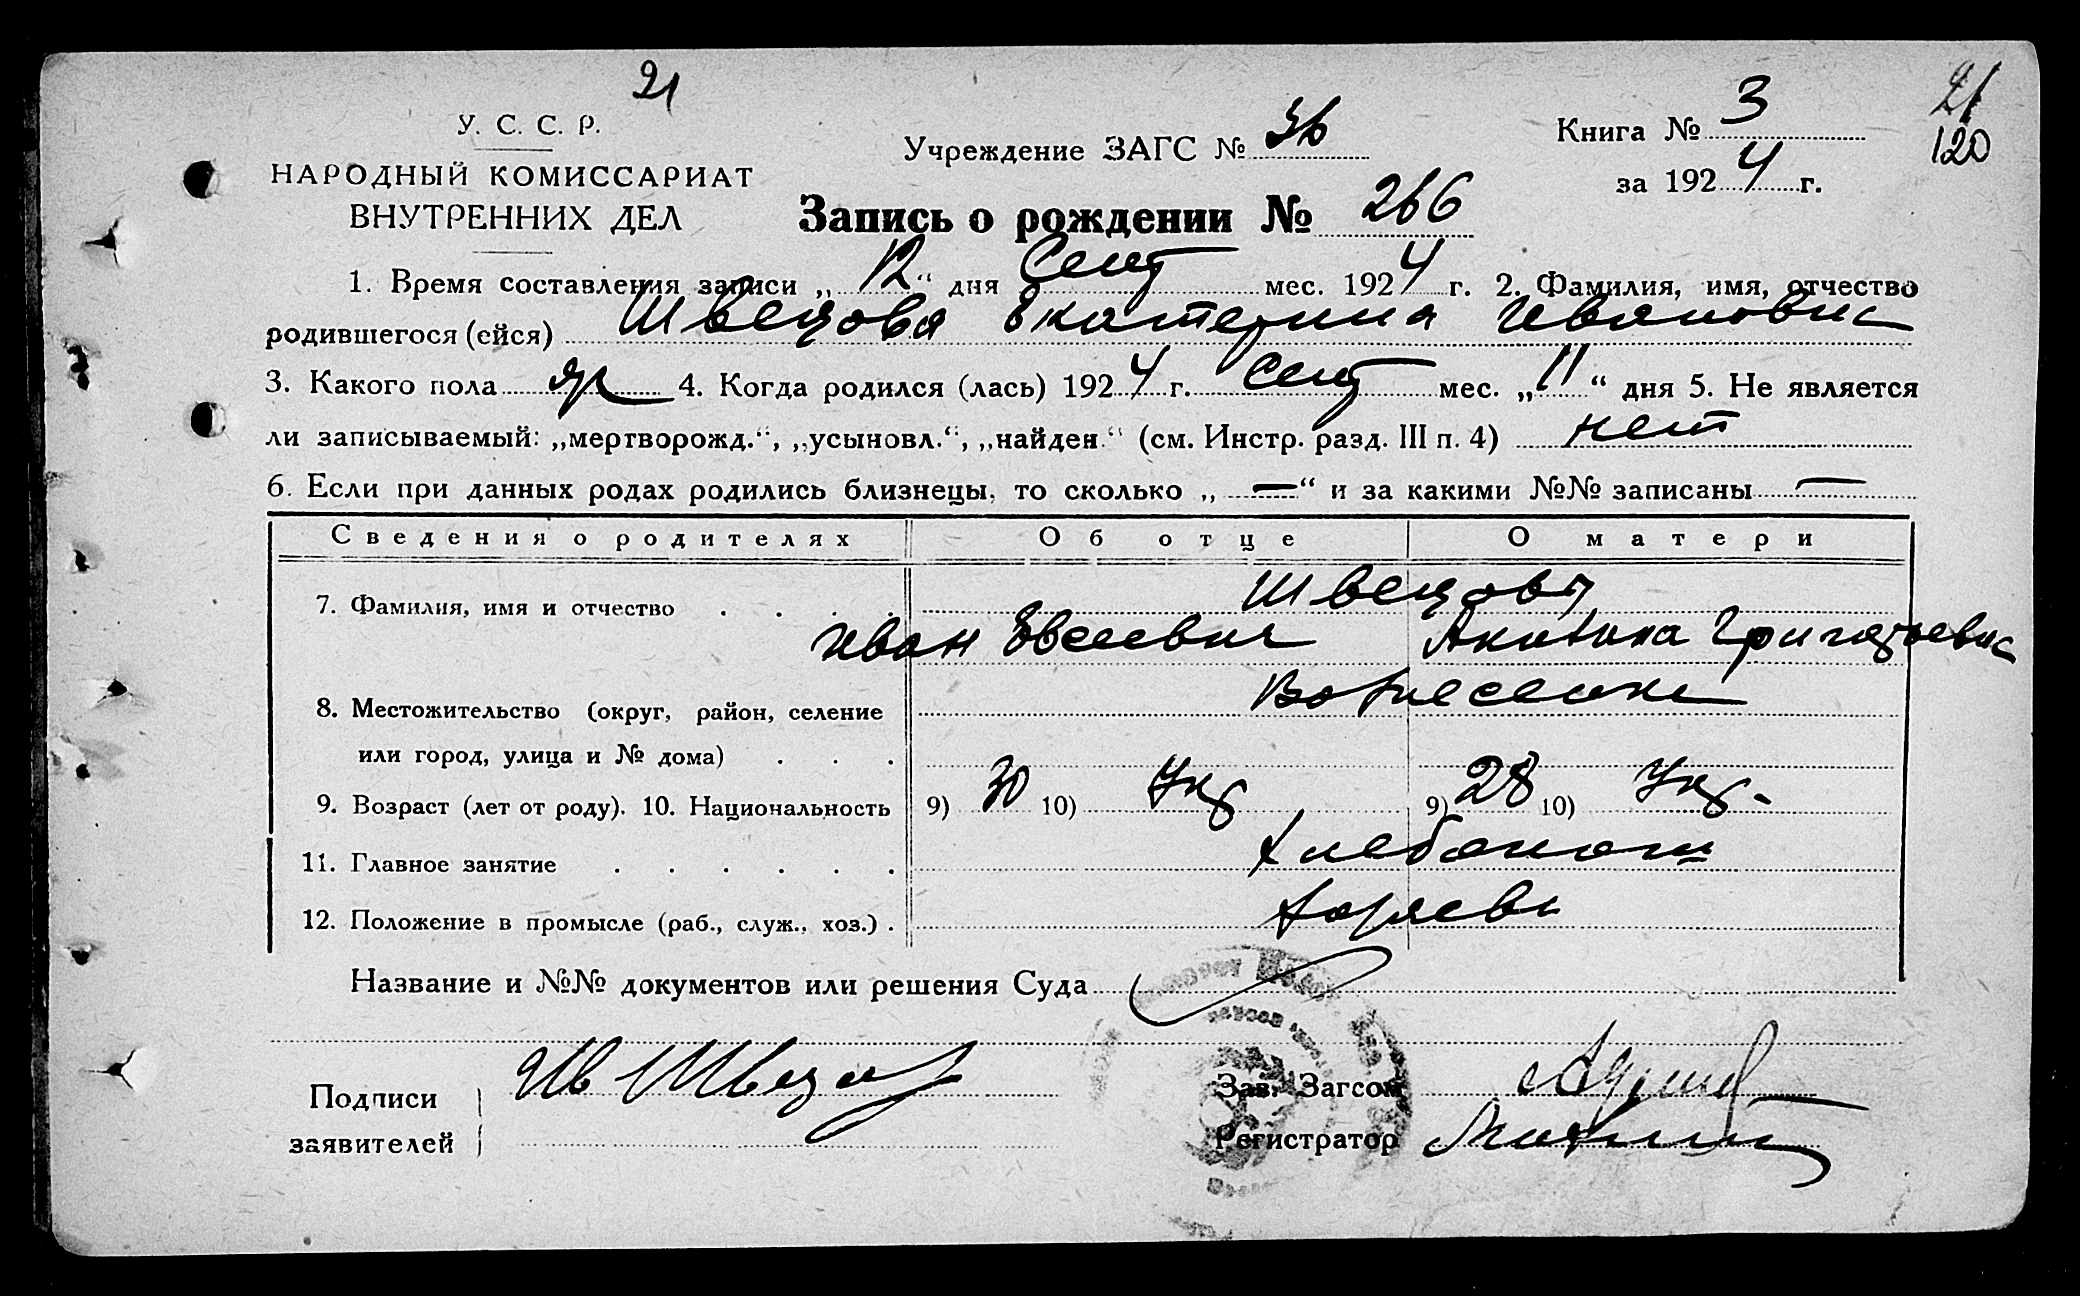 21
21
120
У. С. С. Р.
НАРОДНЫЙ КОМИССАРИАТ
ВНУТРЕННИХ ДЕЛ
Учреждение ЗАГС № 36
Книга № 3
за 1924 г.
Запись о рождении № 266
1. Время составления записи „12“ дня Сент мес. 1924 г. 2. Фамилия, имя, отчество
родившегося (ейся) Швецова Екатерина Ивановна
3. Какого пола 4. Когда родился (лась) 1924 г. Сент мес. „11“ дня 5. Не является
ли записываемый: „мертворожд.“, „усыновл.“, „найден“ (см. Инстр. разд. III п. 4) нет
6. Если при данных родах родились близнецы, то сколько „—“ и за какими №№ записаны —
Сведения о родителях Об отце О матери
7. Фамилия, имя и отчество . . . . Швецовы
Иван Евсеевич Акилина Григорьевна
8. Местожительство (округ, район, селение Вознесенка
или город, улица и № дома) . . .
9. Возраст (лет от роду). 10. Национальность 9) 30 10) Укр 9) 28 10) Укр.
11. Главное занятие . . . . . . Хлебопаш
12. Положение в промысле (раб., служ., хоз.) . Хозяева
Название и №№ документов или решения Суда
Подписи
заявителей
Ив Швецов
Зав. Загсом
Регистратор